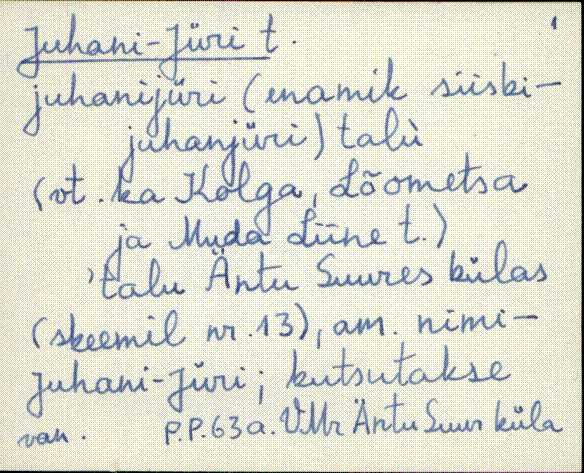 Juhani-Jüri t. 1
juhanijüri (enamik siiski -
juhanjüri) talù
(vt. ka Kolga, Lõometsa
ja Muda Liine t.)
'talu Äntu Suures külas
(skeemil nr. 13), am. nimi -
Juhani-Jüri; kutsutakse
van. P.P. 63 a. VMr Äntu Suur küla